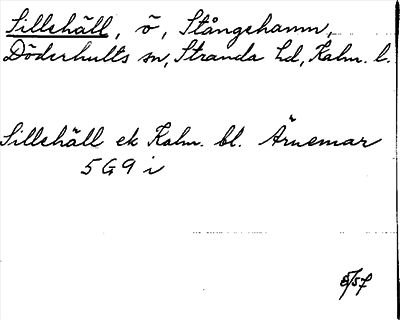 Sillehäll, ö, Stångehamn,
Döderhults sn, Stranda hd, Kalm. l.
Sillehäll ek Kalm. bl. Ärnemar
5G9i
8/57